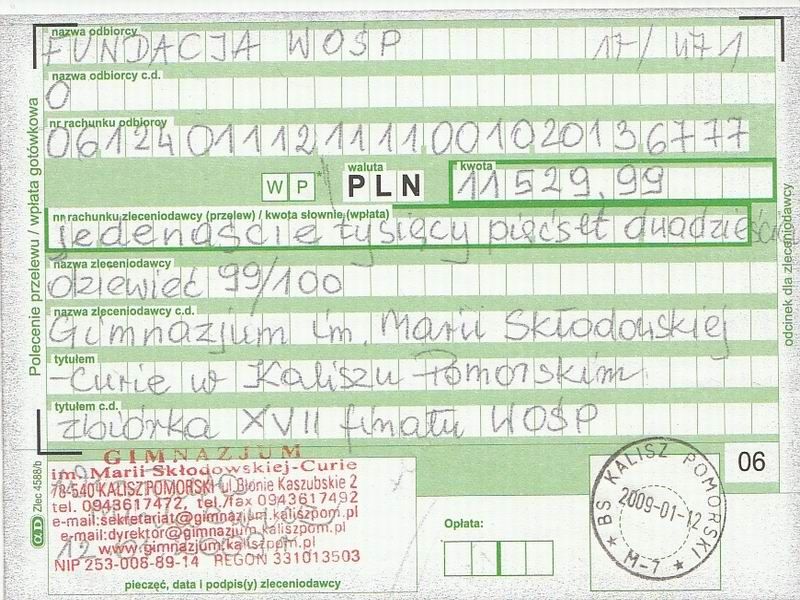 nazwa odbiorcy
FUNDACJA WOŚP 17/471
nazwa odbiorcy c.d.
O
nr rachunku odbiorcy
06124011121111001020136777
waluta kwota
W P * PLN 11529,99
nr rachunku zleceniodawcy (przelew) / kwota słownie (wpłata)
jedenaście tysięcy pięćset dwadzieścia
nazwa zleceniodawcy
dziewięć 99/100
nazwa zleceniodawcy c.d.
Gimnazjum im. Marii Skłodowskiej
tytułem
-Curie w Kaliszu Pomorskim
tytułem c.d.
zbiórka XVII finału WOŚP
Polecenie przelewu / wpłata gotówkowa
odcinek dla zleceniodawcy
06
Zlec 4588/b
GIMNAZJUM
im. Marii Skłodowskiej-Curie
78-540 KALISZ POMORSKI ul. Błonie Kaszubskie 2
tel. 0943617472, tel./fax 0943617492
e-mail:sekretariat@gimnazjum.kaliszpom.pl
e-mail:dyrektor@gimnazjum.kaliszpom.pl
www.gimnazjum.kaliszpom.pl
NIP 253-008-89-14 REGON 331013503
pieczęć, data i podpis(y) zleceniodawcy
Opłata:
BS KALISZ POMORSKI
2009-01-12
M-7